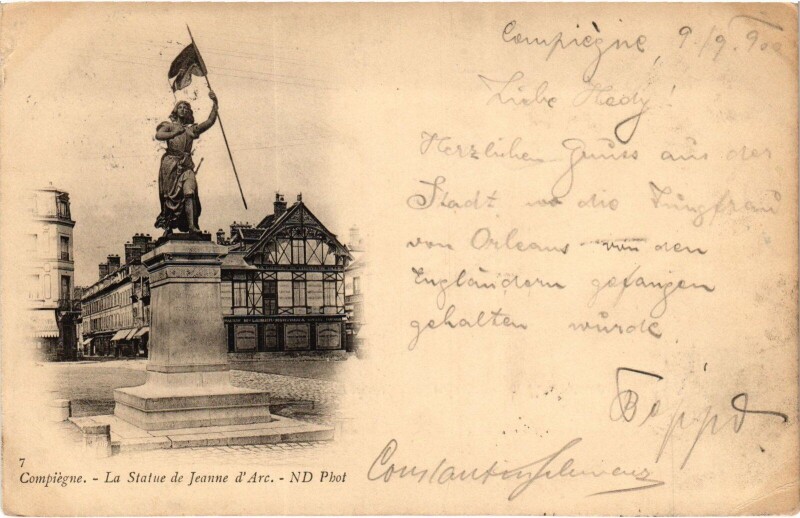 Compiègne, 9./9. 900
Liebe Hedy!
Herzlichen Gruss aus der
Stadt wo die Jungfrau
von Orleans von den
Engländern gefangen
gehalten wurde
7
Compiègne. - La Statue de Jeanne d'Arc. - ND Phot
Constantin